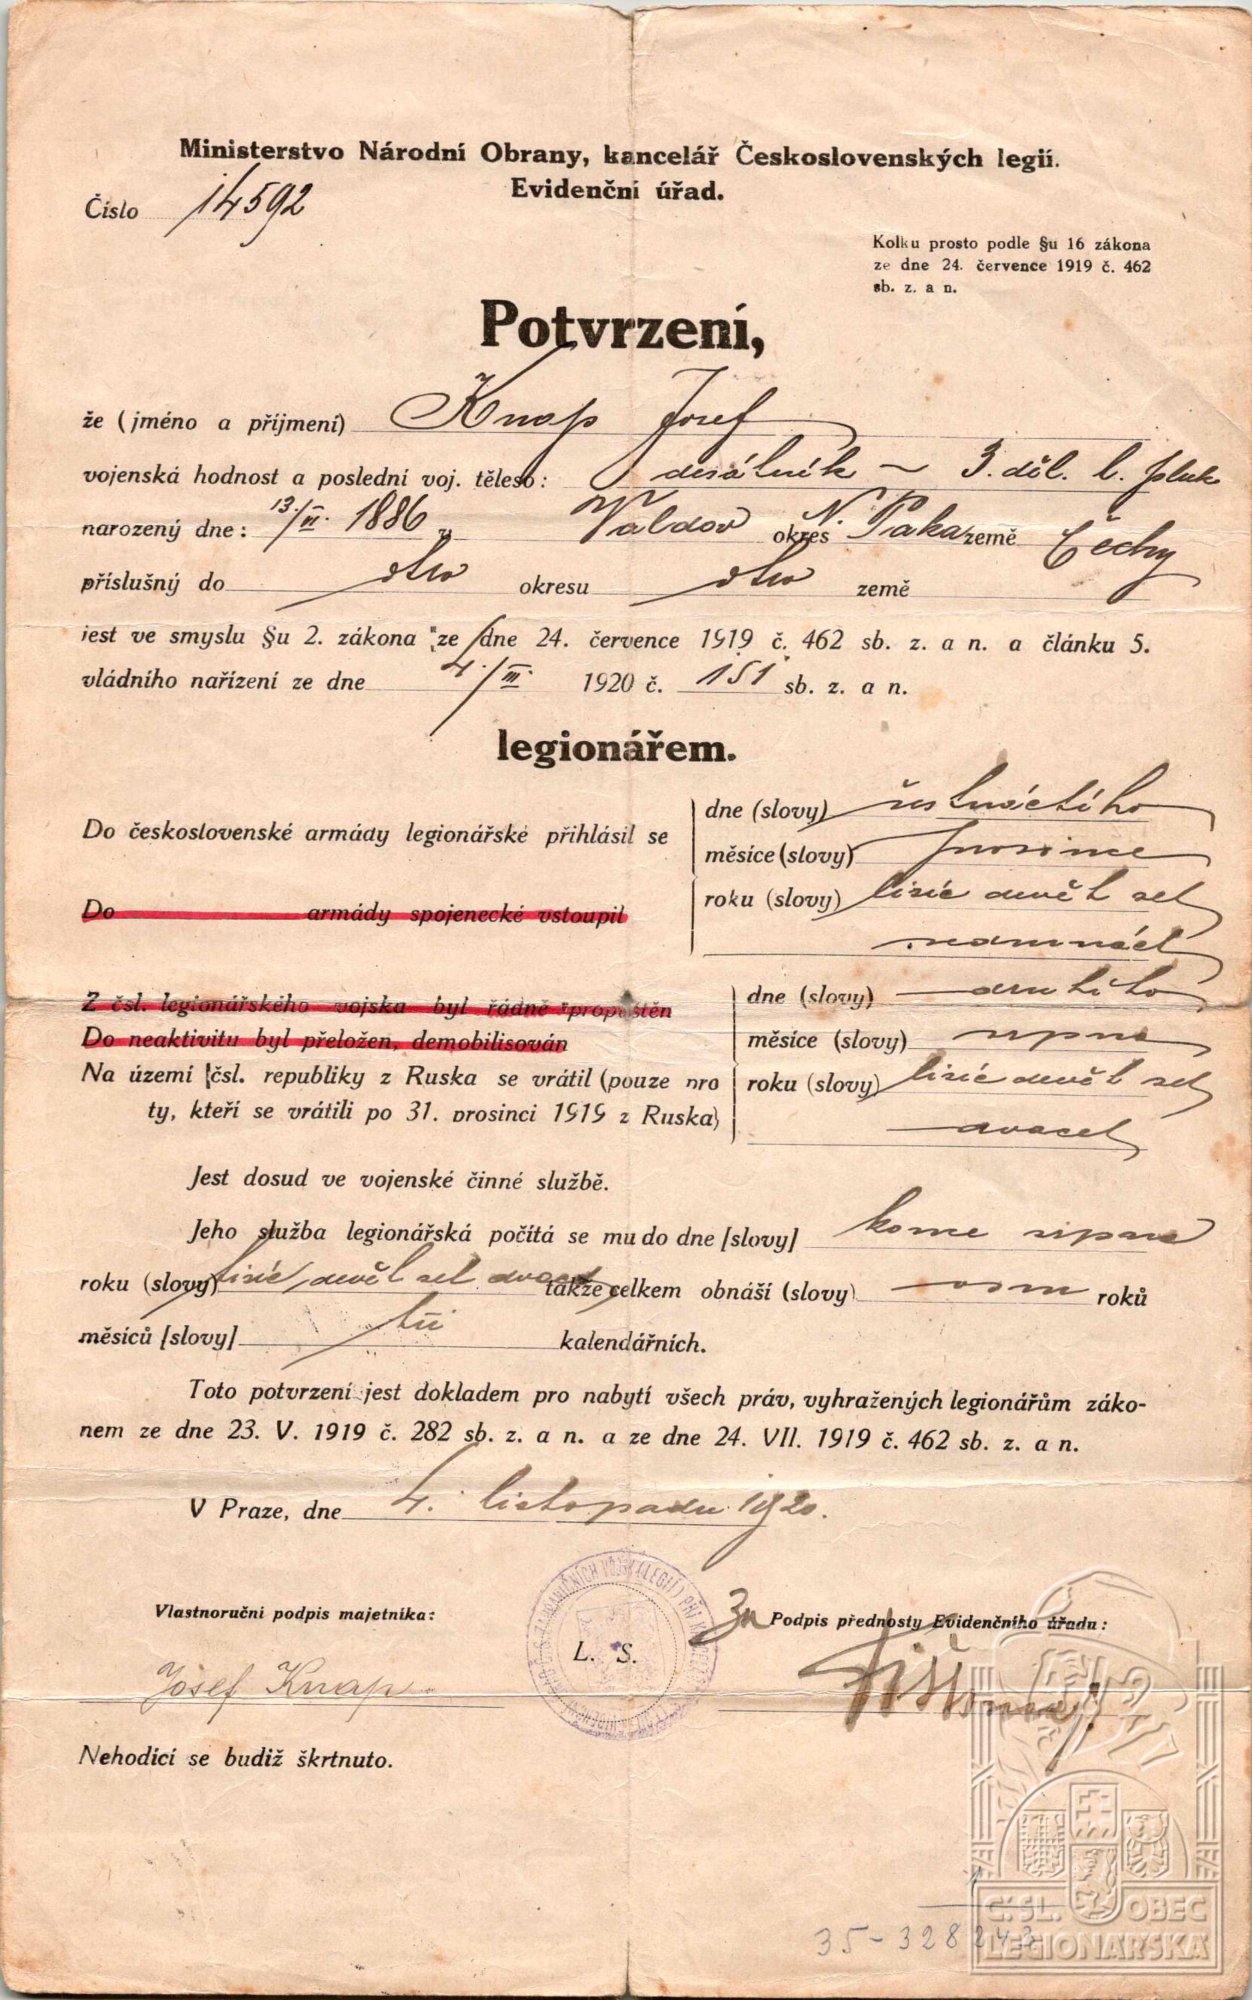 Ministerstvo Národní Obrany, kancelář Československých legií.
Evidenční úřad.
Číslo 14592
Kolku prosto podle §u 16 zákona
ze dne 24. července 1919 č. 462
sb. z. a n.
Potvrzení,
že (jméno a příjmení) Knap Josef
vojenská hodnost a poslední voj. těleso: desátník – 3. děl. l. pluk
narozený dne: 13./VI. 1886 Valdov okres N. Paka země Čechy
příslušný do dtto okresu dtto země
jest ve smyslu §u 2. zákona ze dne 24. července 1919 č. 462 sb. z. a n. a článku 5.
vládního nařízení ze dne 4./III. 1920 č. 151 sb. z. a n.
legionářem.
Do československé armády legionářské přihlásil se
dne (slovy) šestnáctého
měsíce (slovy) prosince
Do armády spojenecké vstoupil
roku (slovy) tisíc devět set
sedmnáct
Z čsl. legionářského vojska byl řádně propuštěn
dne (slovy) druhého
Do neaktivitu byl přeložen, demobilisován
měsíce (slovy) srpna
Na území čsl. republiky z Ruska se vrátil (pouze pro
roku (slovy) tisíc devět set
ty, kteří se vrátili po 31. prosinci 1919 z Ruska)
dvacet
Jest dosud ve vojenské činné službě.
Jeho služba legionářská počítá se mu do dne [slovy] konce srpna
roku (slovy) tisíc devět set dvacet takže celkem obnáší (slovy) osm roků
měsíců [slovy] tři kalendářních.
Toto potvrzení jest dokladem pro nabytí všech práv, vyhražených legionářům záko-
nem ze dne 23. V. 1919 č. 282 sb. z. a n. a ze dne 24. VII. 1919 č. 462 sb. z. a n.
V Praze, dne 4. listopadu 1920.
Vlastnoruční podpis majetníka:
Za Podpis přednosty Evidenčního úřadu:
L. S.
Josef Knap
Nehodící se budiž škrtnuto.
35-328243
Č.SL. OBEC
LEGIONÁŘSKÁ